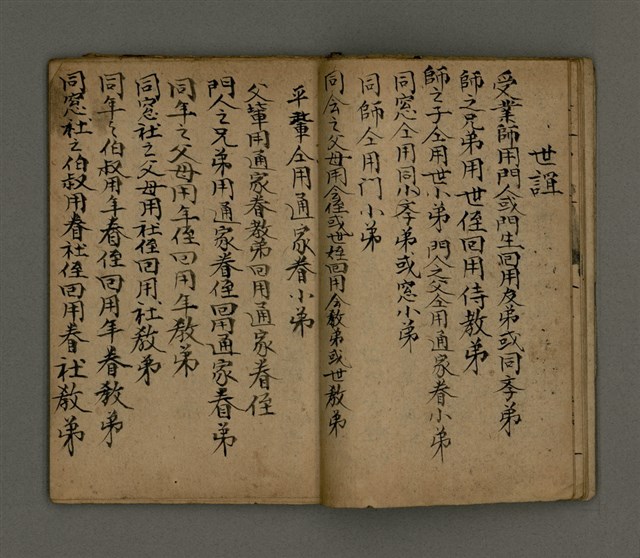 世誼
受業師用門人或門生回用友弟或同李弟
師之兄弟用世侄回用侍教弟
師之子仝用世小弟 門人之父仝用通家眷小弟
同窓仝用同小李弟或窓小弟
同師仝用门小弟
同会之父母用会侄或世侄回用会教弟或世教弟
平輩仝用通家眷小弟
父輩用通家眷教弟回用通家眷侄
門人之兄弟用通家眷侄回用通家眷弟
同年之父母用年侄回用年教弟
同窓社之父母用社侄回用社教弟
同年之伯叔用年眷侄回用年眷教弟
同窓社之伯叔用眷社侄回用眷社教弟